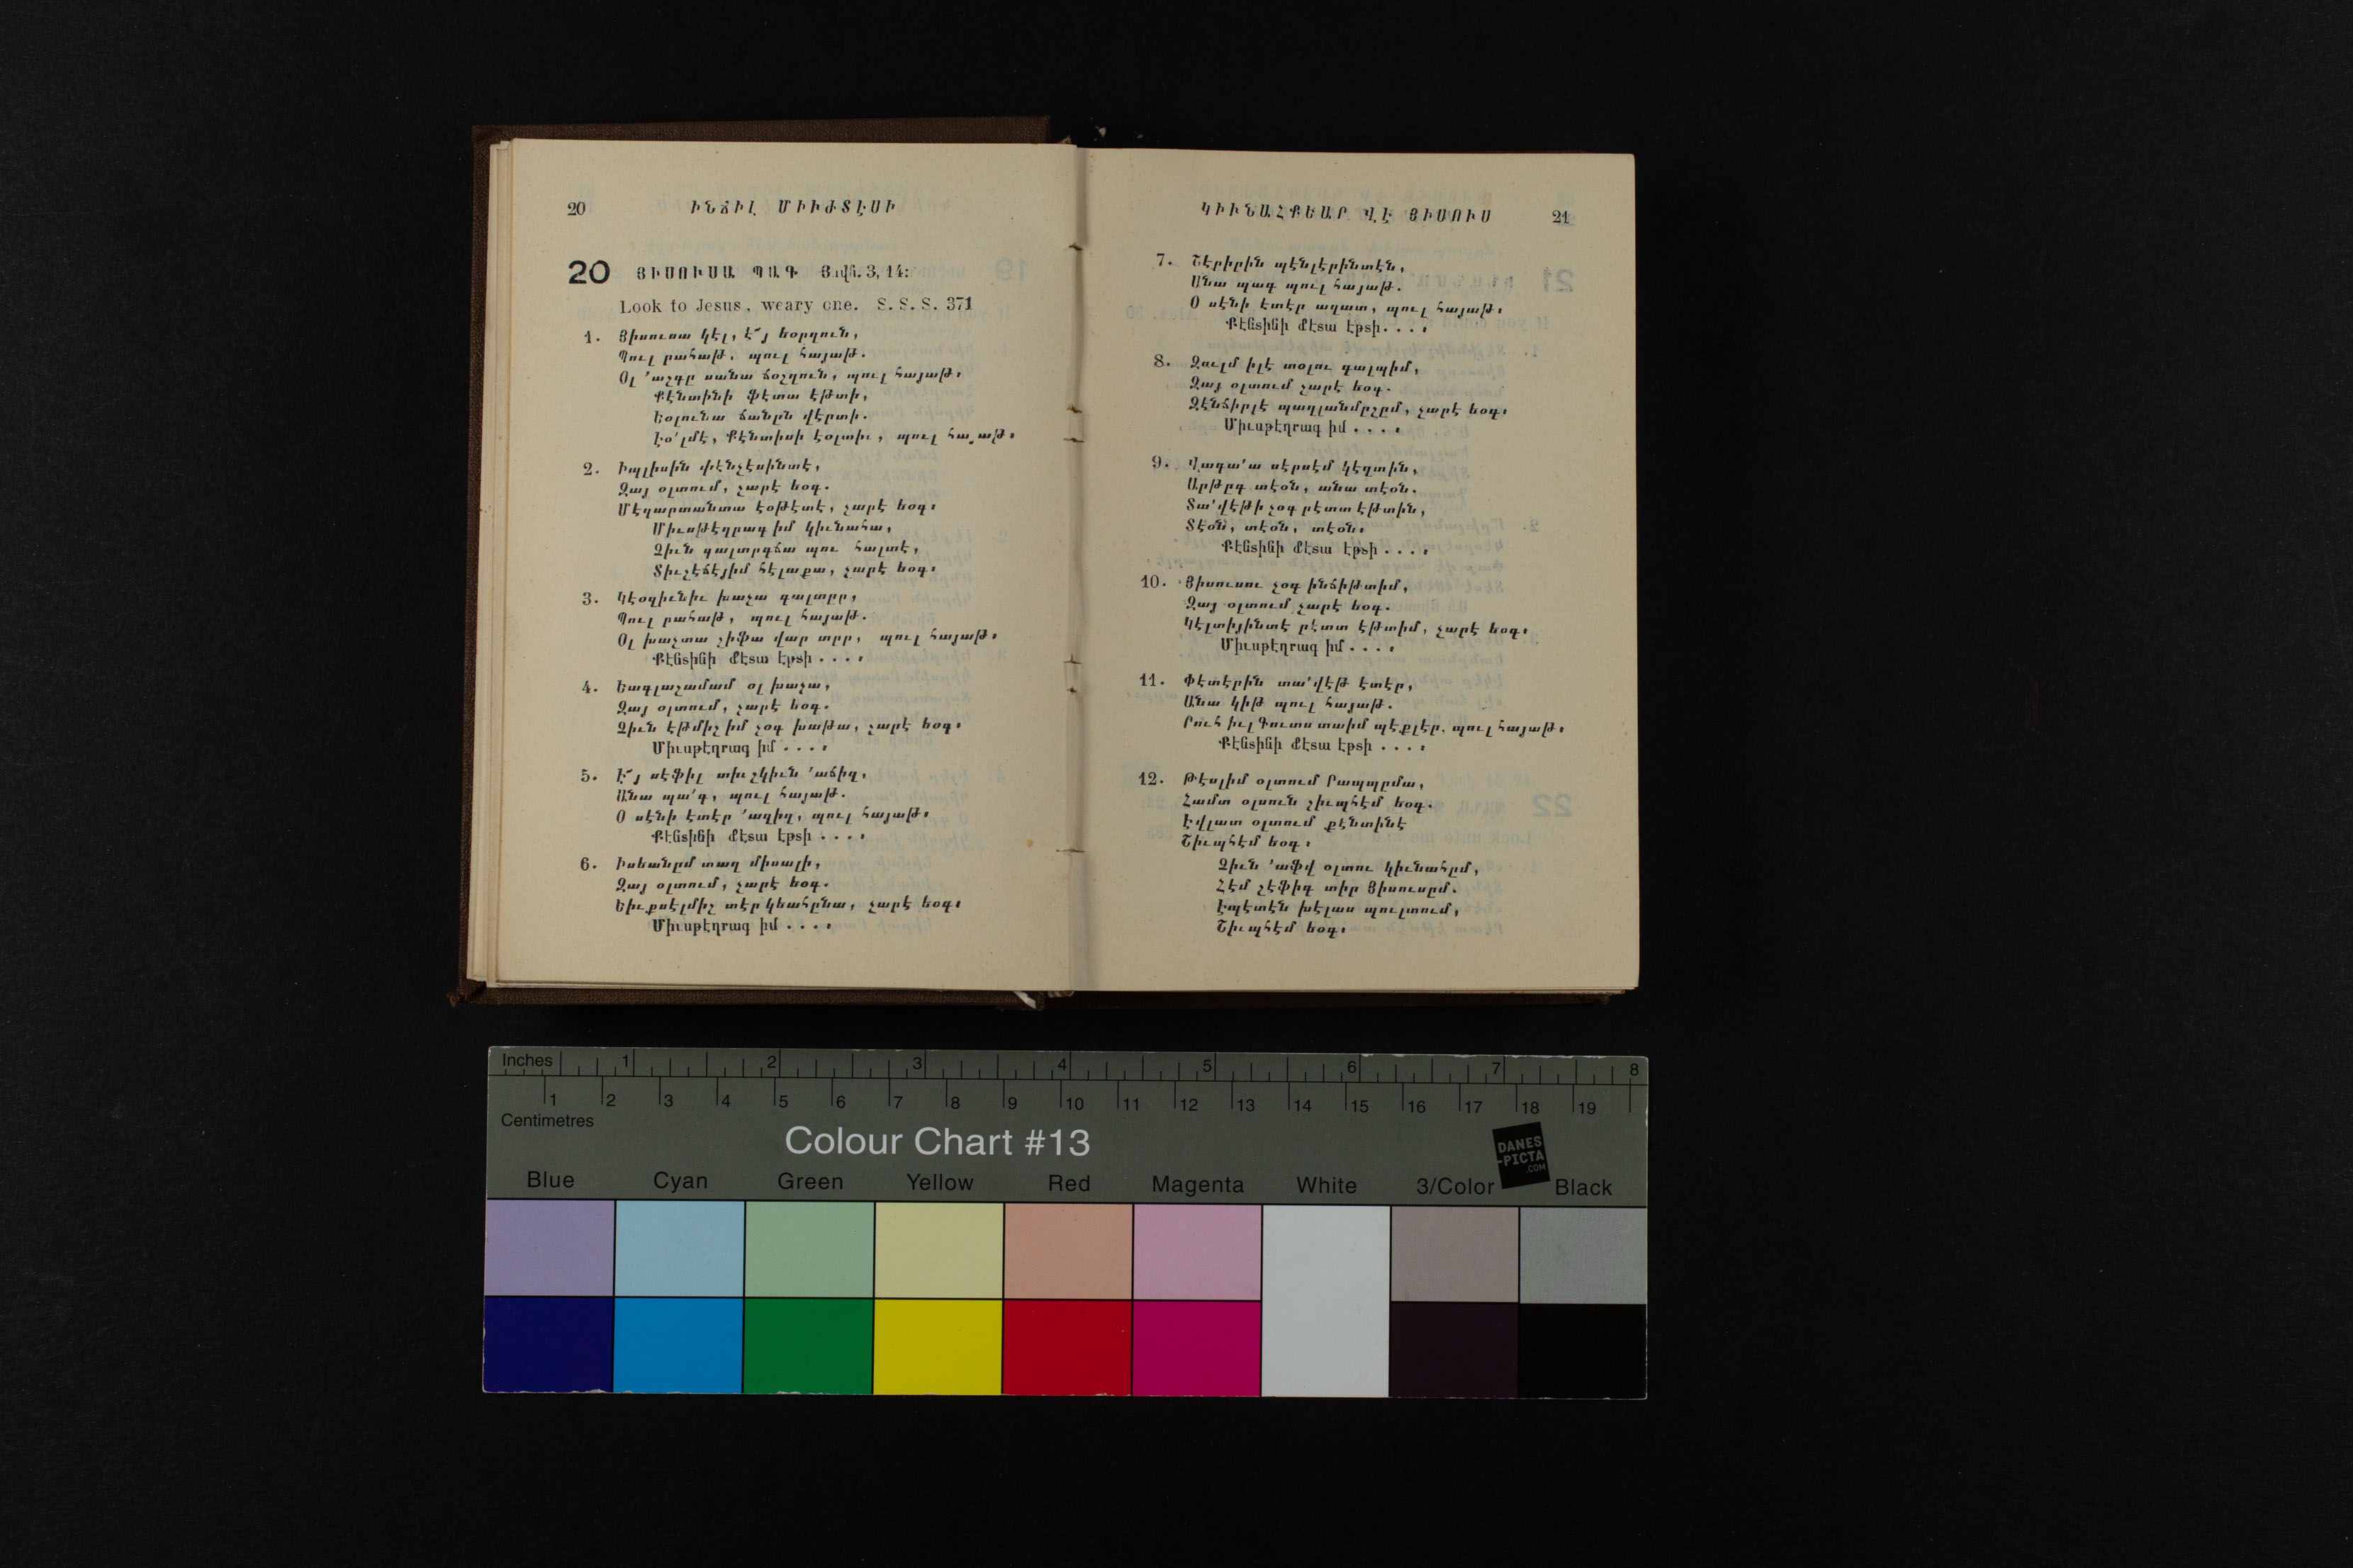 20 ԻՆՃԻԼ ՄԻՒԺՏԷՍԻ
20 ՅԻՍՈՒՍԱ ՊԱԳ Յովհ. 3, 14:
Look to Jesus, weary one. S. S. S. 371
1. Յիսուսա կէլ, է՜յ եօրղուն,
Պուլ րահաթ, պուլ հայաթ.
Օլ ՚աշգը սանա ճօշղուն, պուլ հայաթ։
Քէնտինի ֆէտա էթտի,
Եօլունա ճանըն վէրտի.
Էօ՛լմէ, Քէնտիսի էօլտիւ, պուլ հայաթ։
2. Իպլիսին փէնչէսինտէ,
Զայ օլտում, չարէ եօգ.
Մէզարտանտա էօթէտէ, չարէ եօգ։
Միւսթէղրագ իմ կիւնահա,
Զիւն գալտըգճա պու հալտէ,
Տիւշէճէյիմ հէլաքա, չարէ եօգ։
3. Կէօզիւնիւ խաչա գալտըր,
Պուլ րահաթ, պուլ հայաթ.
Օլ խաչտա շիֆա վար տըր, պուլ հայաթ։
Քէնտինի ֆէտա էթտի . . . .։
4. Եագլաշամամ օլ խաչա,
Զայ օլտում, չարէ եօգ.
Զիւն էթմիշ իմ չօգ խաթա, չարէ եօգ։
Միւսթէղրագ իմ . . . .։
5. Է՜յ սէֆիլ տիւշկիւն ՚աճիզ,
Անա պա՛գ, պուլ հայաթ.
Օ սէնի էտէր ՚ազիզ, պուլ հայաթ։
Քէնտինի ֆէտա էթտի . . . .։
6. Իսեանըմ տաղ միսալի,
Զայ օլտում, չարէ եօգ.
Եիւքսէլմիշ տէրկեահընա, չարէ եօգ։
Միւսթէղրագ իմ . . . .։
ԿԻՒՆԱՀՔԵԱՐ ՎԷ ՅԻՍՈՒՍ 21
7. Շէրիրին պէնլէրինտէն,
Անա պագ պուլ հայաթ.
Օ սէնի էտէր ազատ, պուլ հայաթ։
Քէնտինի ֆէտա էթտի . . . .։
8. Զուլմ իլէ տօլու գալպիմ,
Զայ օլտում չարէ եօգ.
Զէնճիրլէ պաղլանմըշըմ, չարէ եօգ։
Միւսթէղրագ իմ . . . .։
9. Վագա՛ա սէրսէմ կէզտին,
Արթըգ տէօն, անա տէօն.
Տա՛վէթի չօգ րէտտ էթտին,
Տէօն, տէօն, տէօն։
Քէնտինի ֆէտա էթտի . . . .։
10. Յիսուսու չօգ ինճիթտիմ,
Զայ օլտում չարէ եօգ.
Կէլտիյինտէ րէտտ էթտիմ, չարէ եօգ։
Միւսթէղրագ իմ . . . .։
11. Փէտէրին տա՛վէթ էտէր,
Անա կիթ պուլ հայաթ.
Րուհ իւլ Գուտս տաիմ պէքլէր, պուլ հայաթ։
Քէնտինի ֆէտա էթտի . . . .։
12. Թէսլիմ օլտում Րապպըմա,
Համտ օլսուն շիւպհէմ եօգ.
Էվլատ օլտում քէնտինէ
Շիւպհէմ եօգ։
Զիւն ՚աֆվ օլտու կիւնահըմ,
Հէմ շէֆիգ տիր Յիսուսըմ.
Էպէտէն խէլաս պուլտում,
Շիւպհէմ եօգ։
Inches 1 2 3 4 5 6 7 8
1 2 3 4 5 6 7 8 9 10 11 12 13 14 15 16 17 18 19
Centimetres
Colour Chart #13
DANES
-PICTA
.COM
Blue Cyan Green Yellow Red Magenta White 3/Color Black